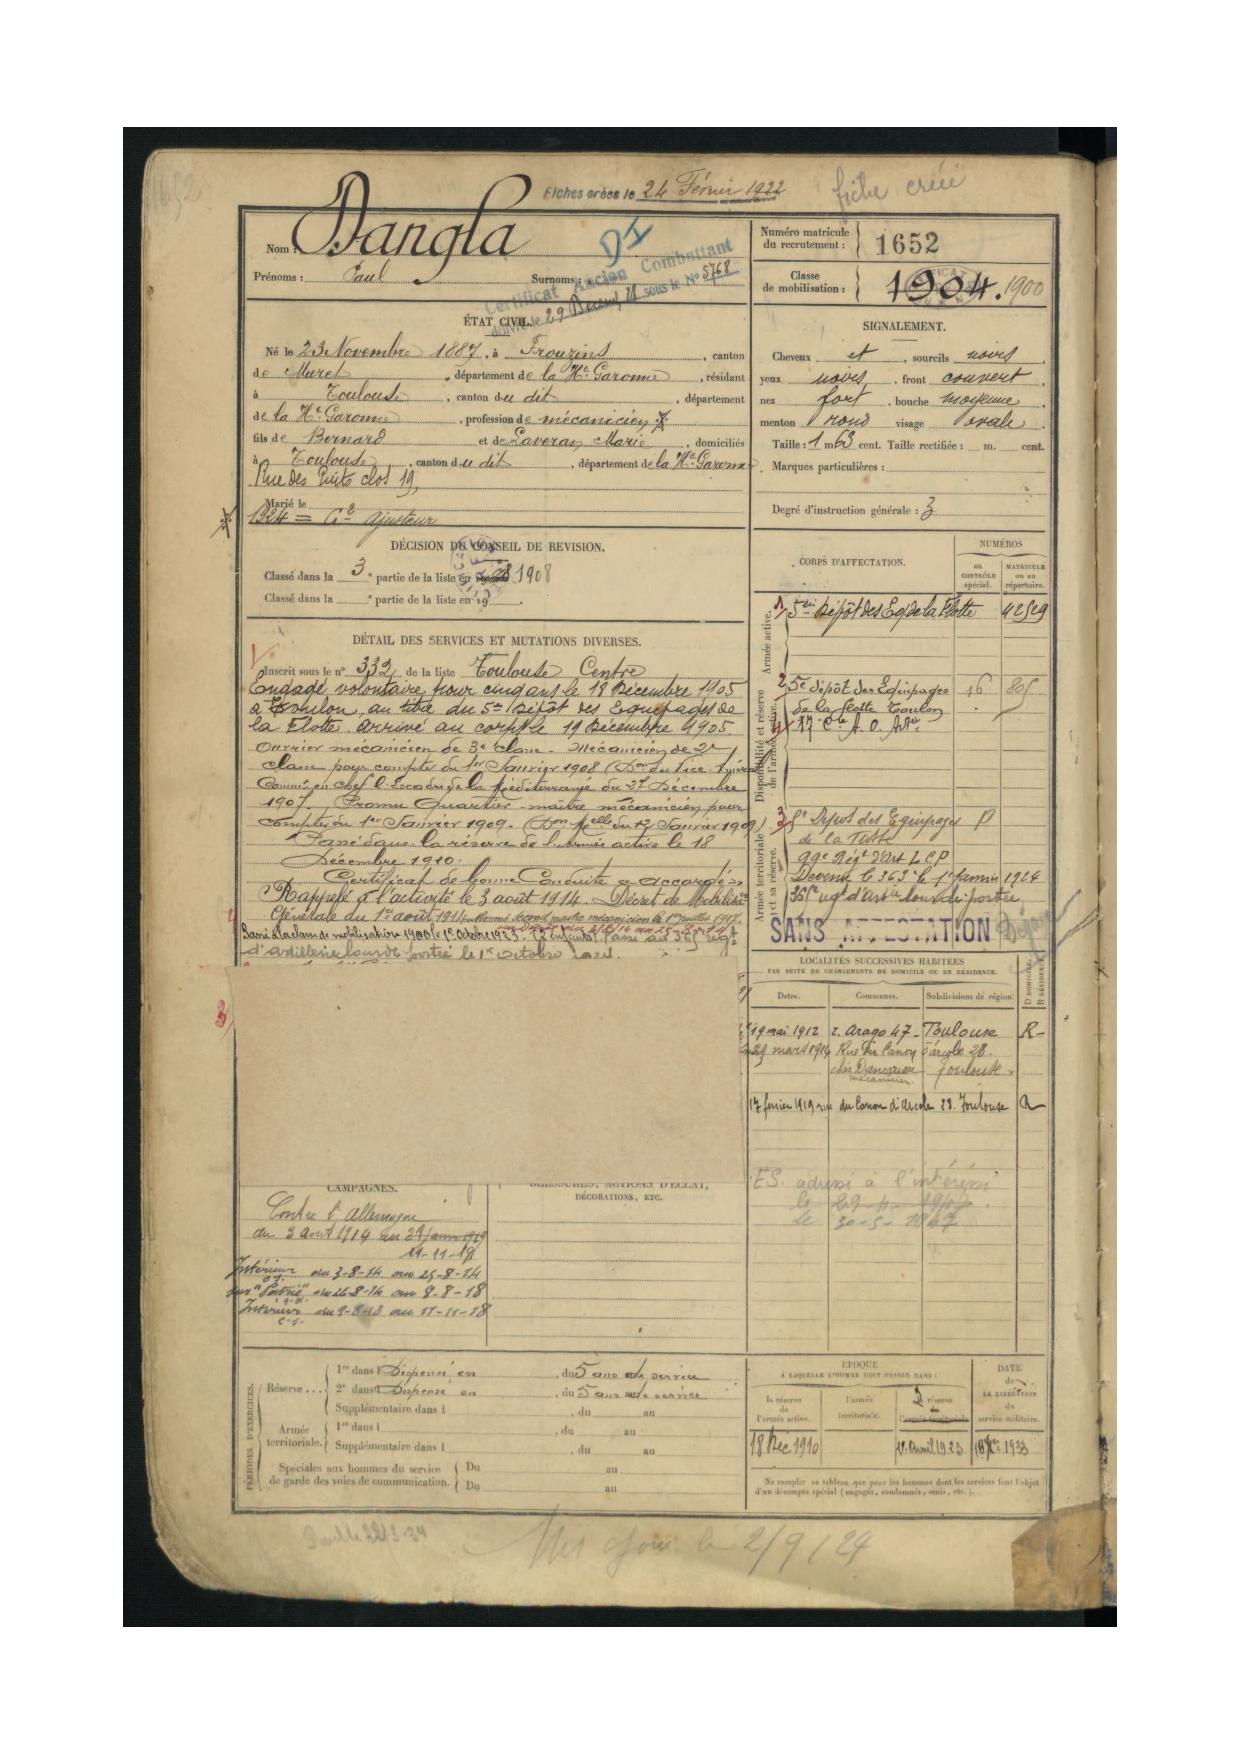 1652
Fiches créées le 24 Février 1922
fiche créée
Nom : Dangla
Prénoms : Paul Surnoms :
DI
Certificat Ancien Combattant
délivré le 29 Décem. 28 sous le N° 5768
Numéro matricule du recrutement : 1652
Classe de mobilisation : 1904. 1900
ÉTAT CIVIL.
Né le 23 Novembre 1887, à Frouzins, canton
de Muret, département de la Hte Garonne, résidant
à Toulouse, canton du dit, département
de la Hte Garonne, profession de mécanicien
fils de Bernard et de Laveran Marie, domiciliés
à Toulouse, canton du dit, département de la Hte Garonne
Rue des Puits clos 19,
Marié le
1924 = Ajusteur
SIGNALEMENT.
Cheveux et, sourcils noirs,
yeux noirs, front couvert,
nez fort, bouche moyenne
menton rond visage ovale
Taille : 1 m 63 cent. Taille rectifiée : m. cent.
Marques particulières :
Degré d'instruction générale : 3
DÉCISION DU CONSEIL DE REVISION.
Classé dans la 3e partie de la liste en 1908
Classé dans la e partie de la liste en 19 .
DÉTAIL DES SERVICES ET MUTATIONS DIVERSES.
Inscrit sous le n° 332 de la liste Toulouse Centre
Engagé volontaire pour cinq ans le 18 Décembre 1905
à Toulon, au titre du 5e Dépôt des Equipages de
la Flotte. Arrivé au corps le 19 Décembre 1905.
Ouvrier mécanicien de 3e classe. Mécanicien de 2e
classe pour compter du 1er Janvier 1908 (Don du Vice-Amiral
Comm. en chef l'Escadre de la Méditerranée du 27 Décembre
1907. Promu Quartier-maître mécanicien pour
compter du 1er Janvier 1909. (Don Melle du 12 Janvier 1909)
Passé dans la réserve de l'Armée active le 18
Décembre 1910.
Certificat de bonne Conduite "accordé"
Rappelé à l'activité le 3 août 1914. Décret de Mobilisation
Générale du 1er août 1914. Nommé second maître mécanicien le 1er juillet 1917.
Passé à la classe de mobilisation 1900 le 1er Octobre 1923. (2 enfants). Passé au 365 régt
d'artillerie lourde portée le 1er octobre 1924.
CORPS D'AFFECTATION.
NUMÉROS
AU CONTRÔLE SPÉCIAL.
MATRICULE OU AU RÉPERTOIRE.
Armée active.
1 5me Dépôt des Eq. de la Flotte 42529
Disponibilité et réserve de l'armée active.
2 5e dépôt des Equipages 16 805
de la flotte Toulon
4 17 Cie A. O. Artie
Armée territoriale et sa réserve.
3 5e Dépot des Equipages P
de la Flotte
99e Régt d'Art L C P
Devenu le 363e le 1er janvier 1924
365e régt d'artie lourde portée
SANS ATTESTATION
LOCALITÉS SUCCESSIVES HABITÉES
PAR SUITE DE CHANGEMENTS DE DOMICILE OU DE RÉSIDENCE.
Dates. Communes. Subdivisions de région. D DOMICILE. R RÉSIDENCE.
19 mai 1912 r. Arago 47 - Toulouse R-
29 mars 1914 Rue du Canon d'arcole 28.
mécanicien. Toulouse
17 février 1919 rue du Canon d'Arcole 28. Toulouse R
ES. adressé à l'intéressé
CAMPAGNES.
Contre l'Allemagne
du 3 août 1914 au
11-11-19
Intérieur du 3-8-14 au 25-8-14
sur "Patrie" du 26-8-14 au 8-8-18
Intérieur du 9-8-18 au 11-11-18
C.S.
BLESSURES, ACTIONS D'ÉCLAT,
DÉCORATIONS, ETC.
PÉRIODES D'EXERCICES.
Réserve ... 1re dans l Dispensé en, du 5 ans de service
2e dans l Dispensé en, du 5 ans de service
Supplémentaire dans l , du au
Armée territoriale. 1re dans l , du au
Supplémentaire dans l , du au
Spéciales aux hommes du service de garde des voies de communication. Du au
Du au
EPOQUE
A LAQUELLE L'HOMME DOIT PASSER DANS :
la réserve de l'armée active.
l'armée territoriale.
la réserve de l'armée territoriale
DATE de LA LIBÉRATION du service militaire.
18 Déc 1910 1r Avril 1923 18 Xre 1933
Ne remplir ce tableau que pour les hommes dont les services font l'objet
d'un décompte spécial (engagés, condamnés, omis, etc.).
Mis à jour le 2/9/24